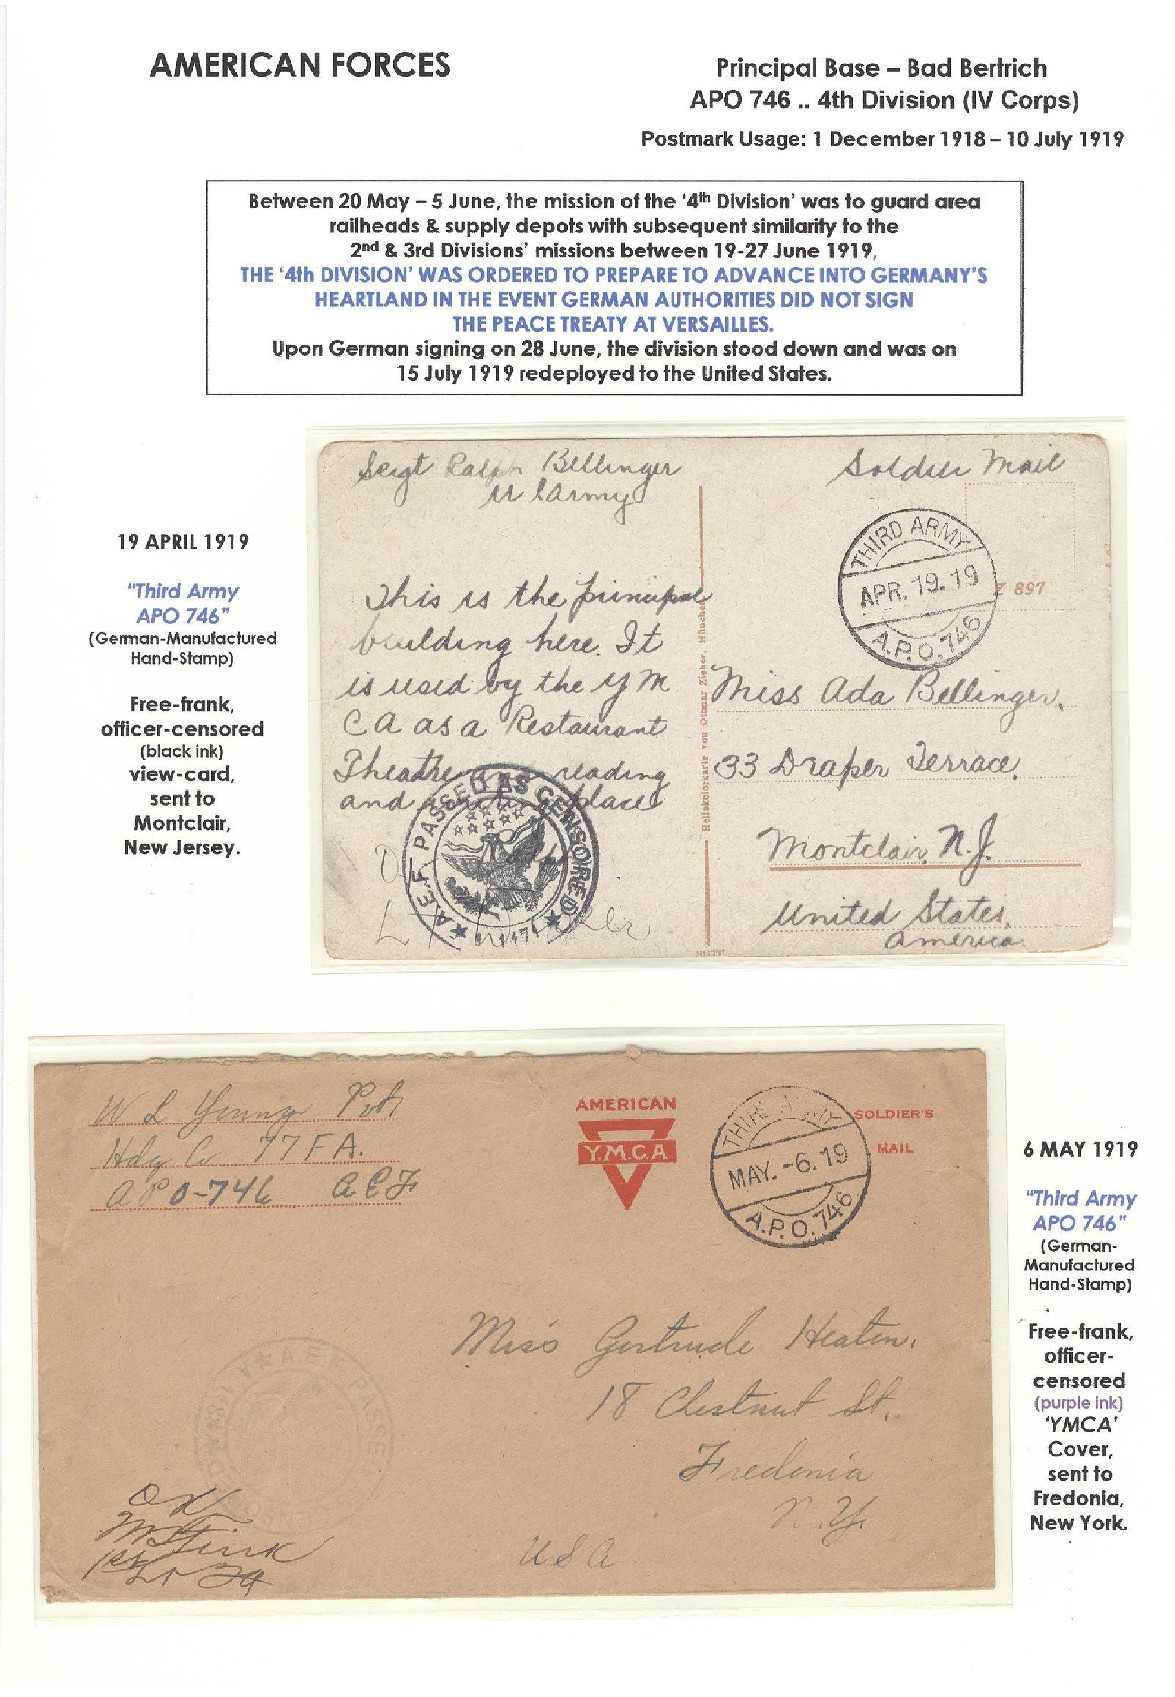 AMERICAN FORCES
Principal Base – Bad Bertrich
APO 746 .. 4th Division (IV Corps)
Postmark Usage: 1 December 1918 – 10 July 1919
Between 20 May – 5 June, the mission of the '4th Division' was to guard area
railheads & supply depots with subsequent similarity to the
2nd & 3rd Divisions' missions between 19-27 June 1919,
THE '4th DIVISION' WAS ORDERED TO PREPARE TO ADVANCE INTO GERMANY'S
HEARTLAND IN THE EVENT GERMAN AUTHORITIES DID NOT SIGN
THE PEACE TREATY AT VERSAILLES.
Upon German signing on 28 June, the division stood down and was on
15 July 1919 redeployed to the United States.
19 APRIL 1919
"Third Army
APO 746"
(German-Manufactured
Hand-Stamp)
Free-frank,
officer-censored
(black ink)
view-card,
sent to
Montclair,
New Jersey.
Sergt Ralph Bellinger
U S Army
This is the principal
building here. It
is used by the Y M
C A as a Restaurant
Theatre and reading
and writing place
A.E.F. PASSED AS CENSORED
Soldier Mail
THIRD ARMY
APR. 19. 19
A.P.O. 746
Z 897
Miss Ada Bellinger,
33 Draper Terrace,
Montclair, N.J.
United States,
America
Heliokolorkarte von Ottmar Zieher, München
W L Young Pvt
Hdq Co 77 F A.
A P O-746 A E F
AMERICAN
Y.M.C.A
SOLDIER'S
MAIL
THIRD ARMY
MAY. -6. 19
A.P.O. 746
Miss Gertrude Heaton,
18 Chestnut St.,
Fredonia
N. Y.
U S A
OK
1st Lt FA
6 MAY 1919
"Third Army
APO 746"
(German-
Manufactured
Hand-Stamp)
Free-frank,
officer-
censored
(purple ink)
'YMCA'
Cover,
sent to
Fredonia,
New York.